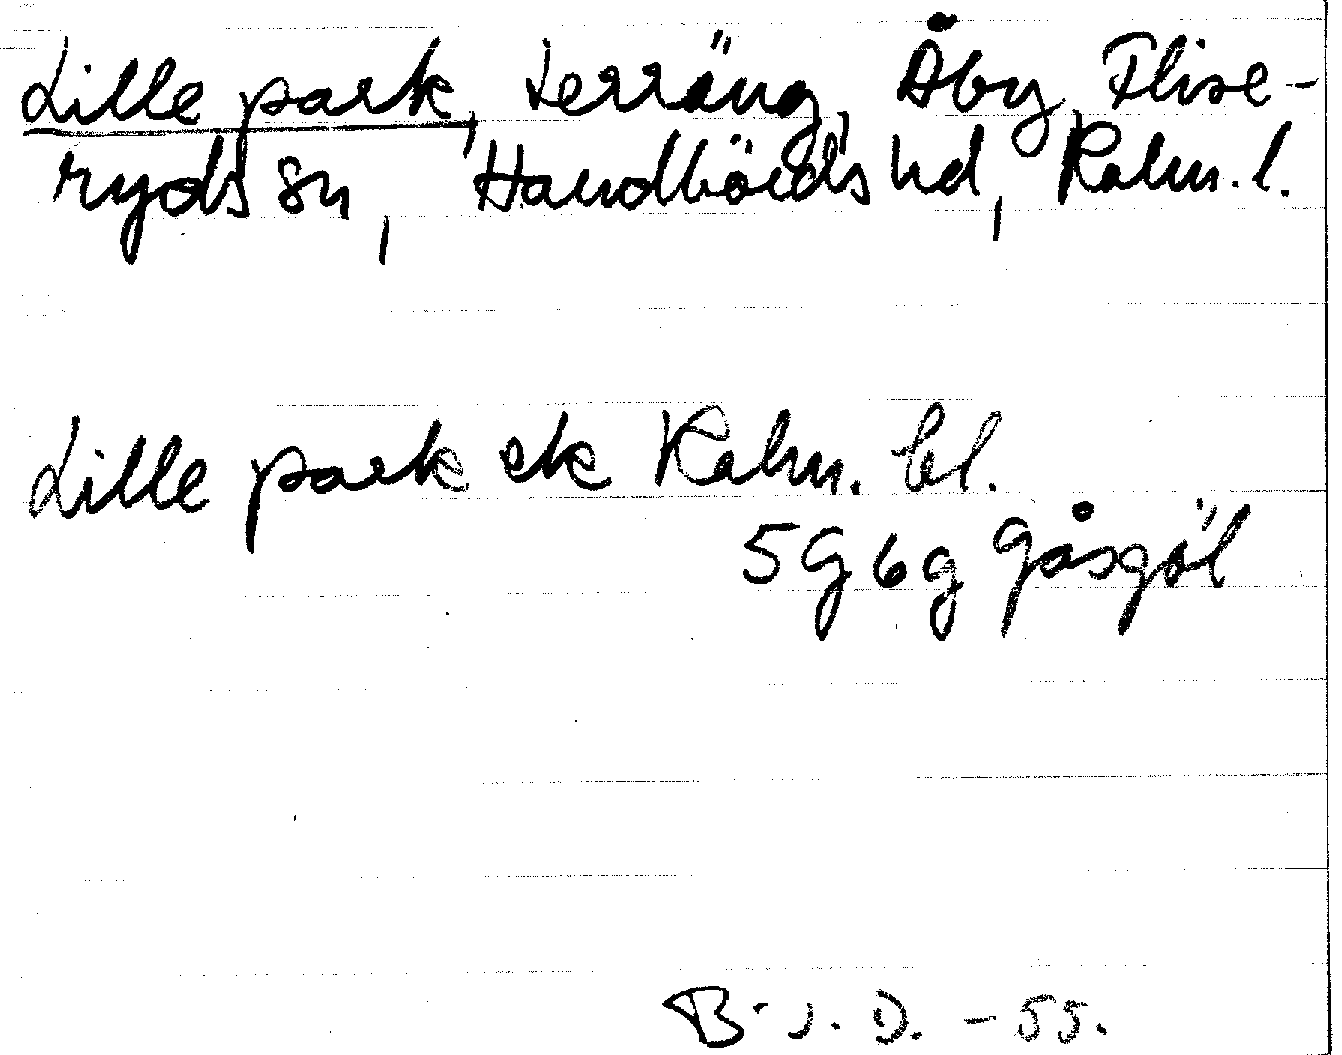 Lille park, terräng, Åby, Flise-
ryds sn, Handbörds hd, Kalm. l.
Lille park ek Kalm. bl.
5 G 6 g Gåsgöl
B. J. D. - 55.